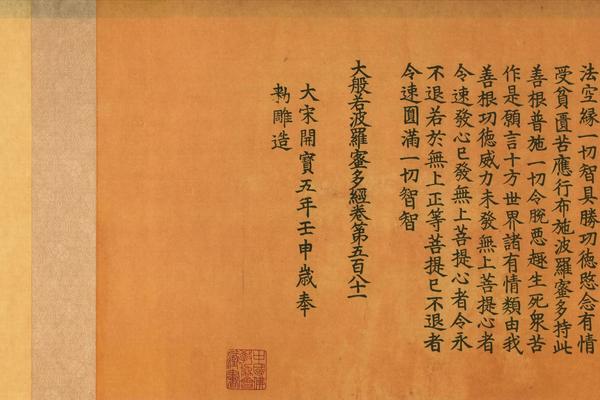 法空緣一切智具勝功德愍念有情
受貧匱苦應行布施波羅蜜多持此
善根普施一切令脫惡趣生死衆苦
作是願言十方世界諸有情類由我
善根功德威力未發無上菩提心者
令速發心已發無上菩提心者令永
不退若於無上正等菩提已不退者
令速圓滿一切智智
大般若波羅蜜多經卷第五百八十一
大宋開寶五年壬申歲奉
勑雕造